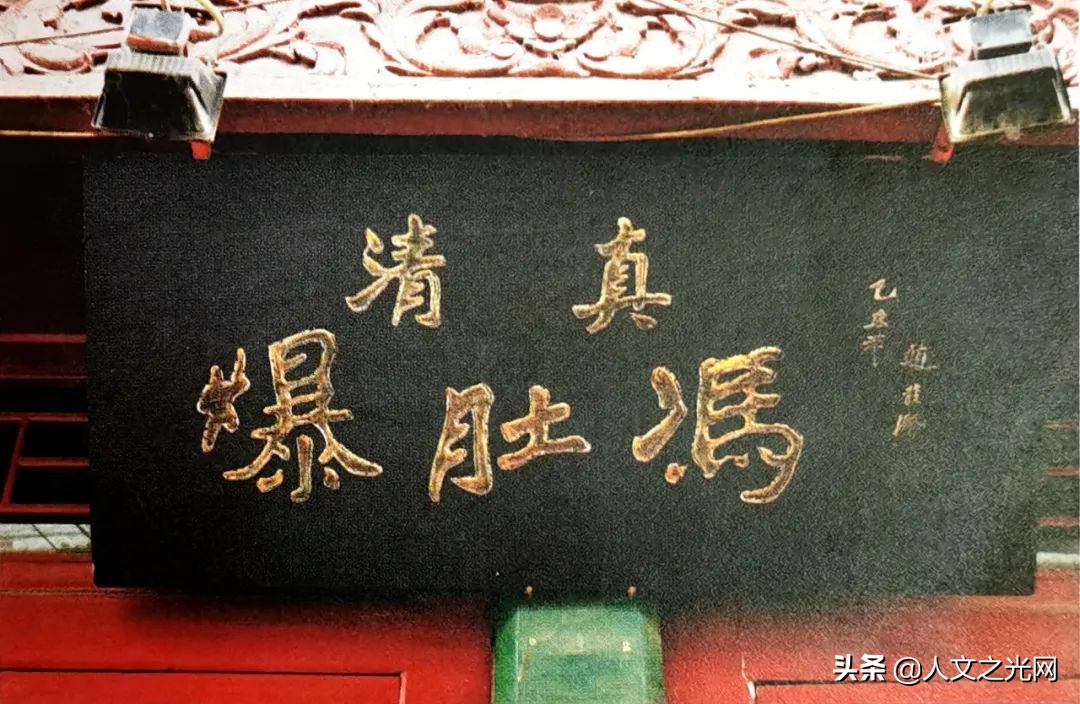 清真
爆肚馮
乙丑
趙
头条 @人文之光网